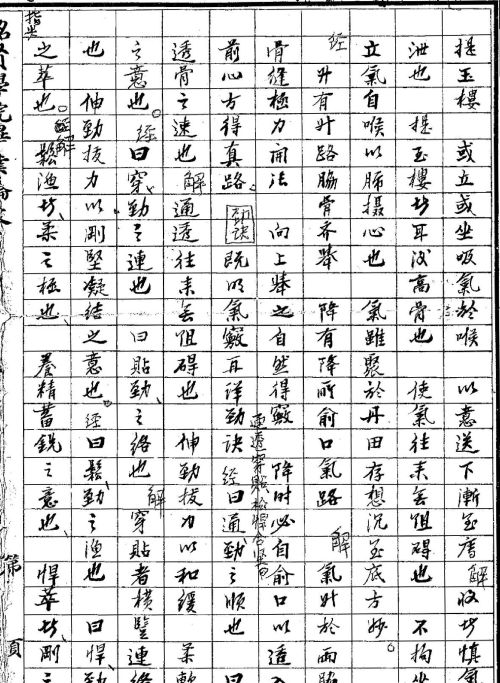 提玉樓　或立或坐吸氣於喉　以意送下漸至唇　解　收
泄也　提玉樓　耳後高骨也　使氣往来無阻碍也　不拘
立氣自喉以肺攝心也　氣雖聚於丹田存想沉至底方妙。
經　升有升路脇骨齊舉　降有降所俞口氣路　解　氣升於兩脇
骨縫極力開法　向上舉之自然得竅　降時必自俞口以透入
前心方得真路。　勁訣　既明氣竅再詳勁訣　經曰通勁之順也　曰
透骨之速也　解　通透往来無阻碍也　伸勁拔力以和緩　柔軟
之意也。經曰穿、勁之連也　曰貼勁、之絡也　解　穿貼者橫豎連絡
也　伸勁拔力以剛堅凝結之意也。經曰鬆、勁之渙也　曰悍、勁
之萃也。解　鬆渙　柔之極也、養精蓄銳之意也、悍萃　剛之
通透穿貼鬆悍合堅
第　頁